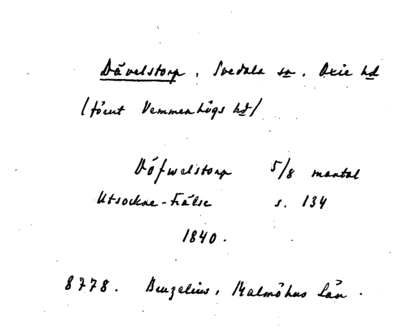 Dävelstorp, Svedala sn. Oxie hd
(förut Vemmenhögs hd)
Döfwelstorp 5/8 mantal
Utsockne-Frälse s. 134
1840.
8778. Benzelius, Malmöhus Län.